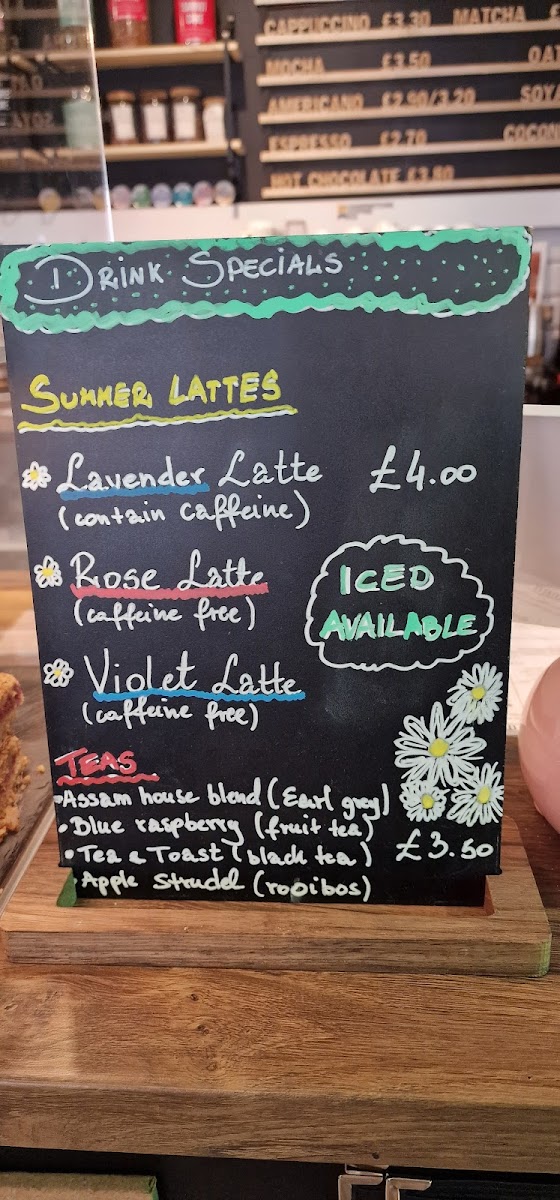 CAPPUCCINO £3.30 MATCHA £
MOCHA £3.50 OAT
AMERICANO £2.90/3.20 SOYA
ESPRESSO £2.70 COCON
HOT CHOCOLATE £3.80
DRINK SPECIALS
SUMMER LATTES
Lavender Latte £4.00
(contain caffeine)
Rose Latte
(caffeine free)
ICED
AVAILABLE
Violet Latte
(caffeine free)
TEAS
• Assam house blend (Earl grey)
• Blue raspberry (fruit tea)
• Tea & Toast (black tea) £3.50
• Apple Strudel (rooibos)